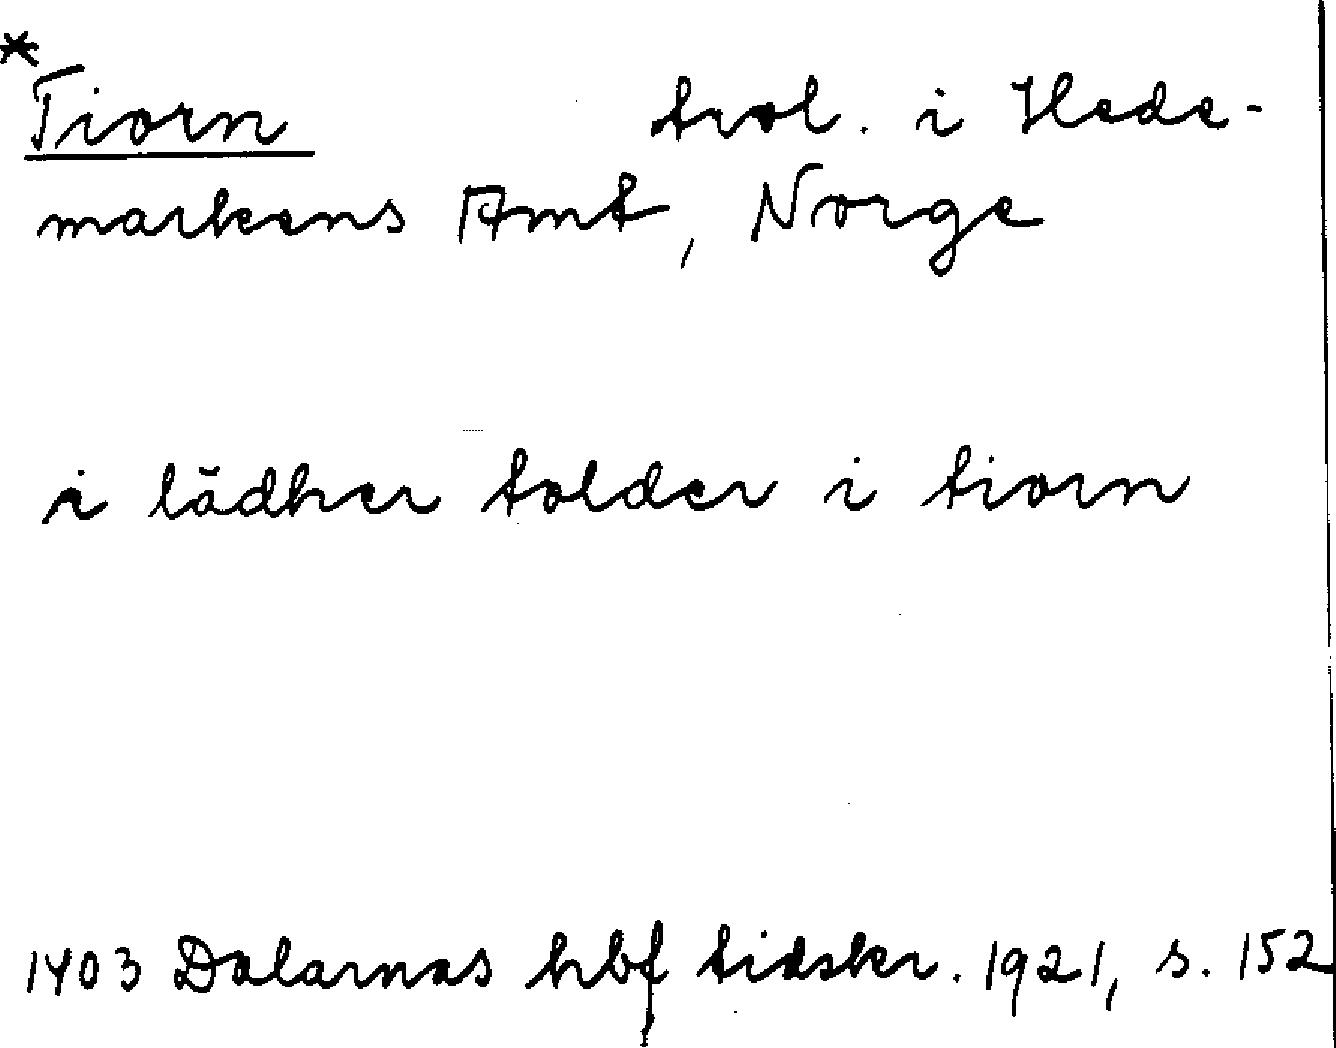 *
Tiorn trol. i Hede-
markens Amt, Norge
i lädher tolder i tiorn
1403 Dalarnas hbf tidskr. 1921, s. 152